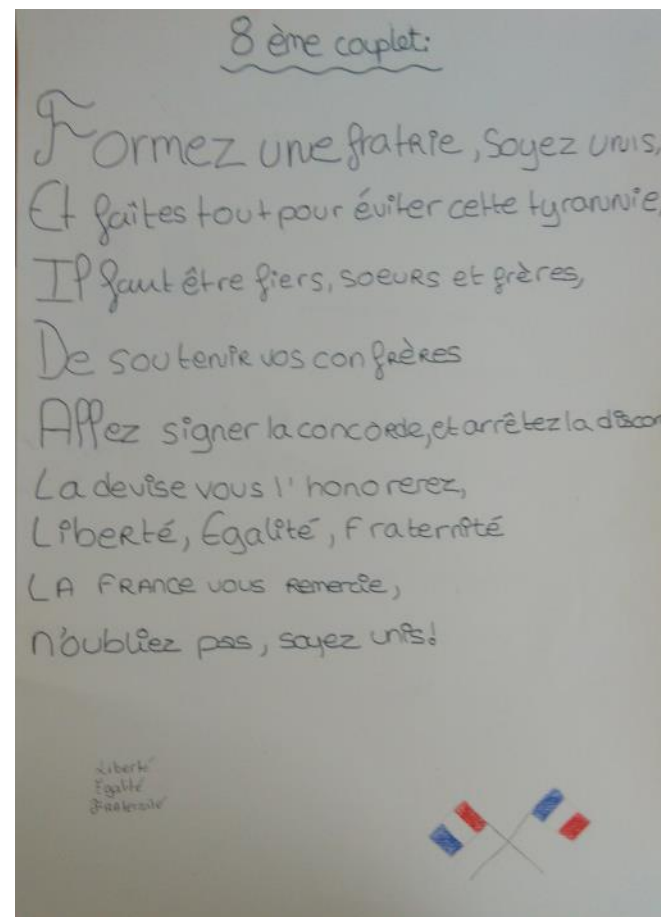 8 ème couplet:
Formez une fratrie, Soyez unis,
Et faites tout pour éviter cette tyrannie,
Il faut être fiers, soeurs et frères,
De soutenir vos confrères
Allez signer la concorde, et arrêtez la discor
La devise vous l'honorerez,
Liberté, Egalité, Fraternité
LA FRANCE vous remercie,
n'oubliez pas, soyez unis!
Liberté
Egalité
Fraternité